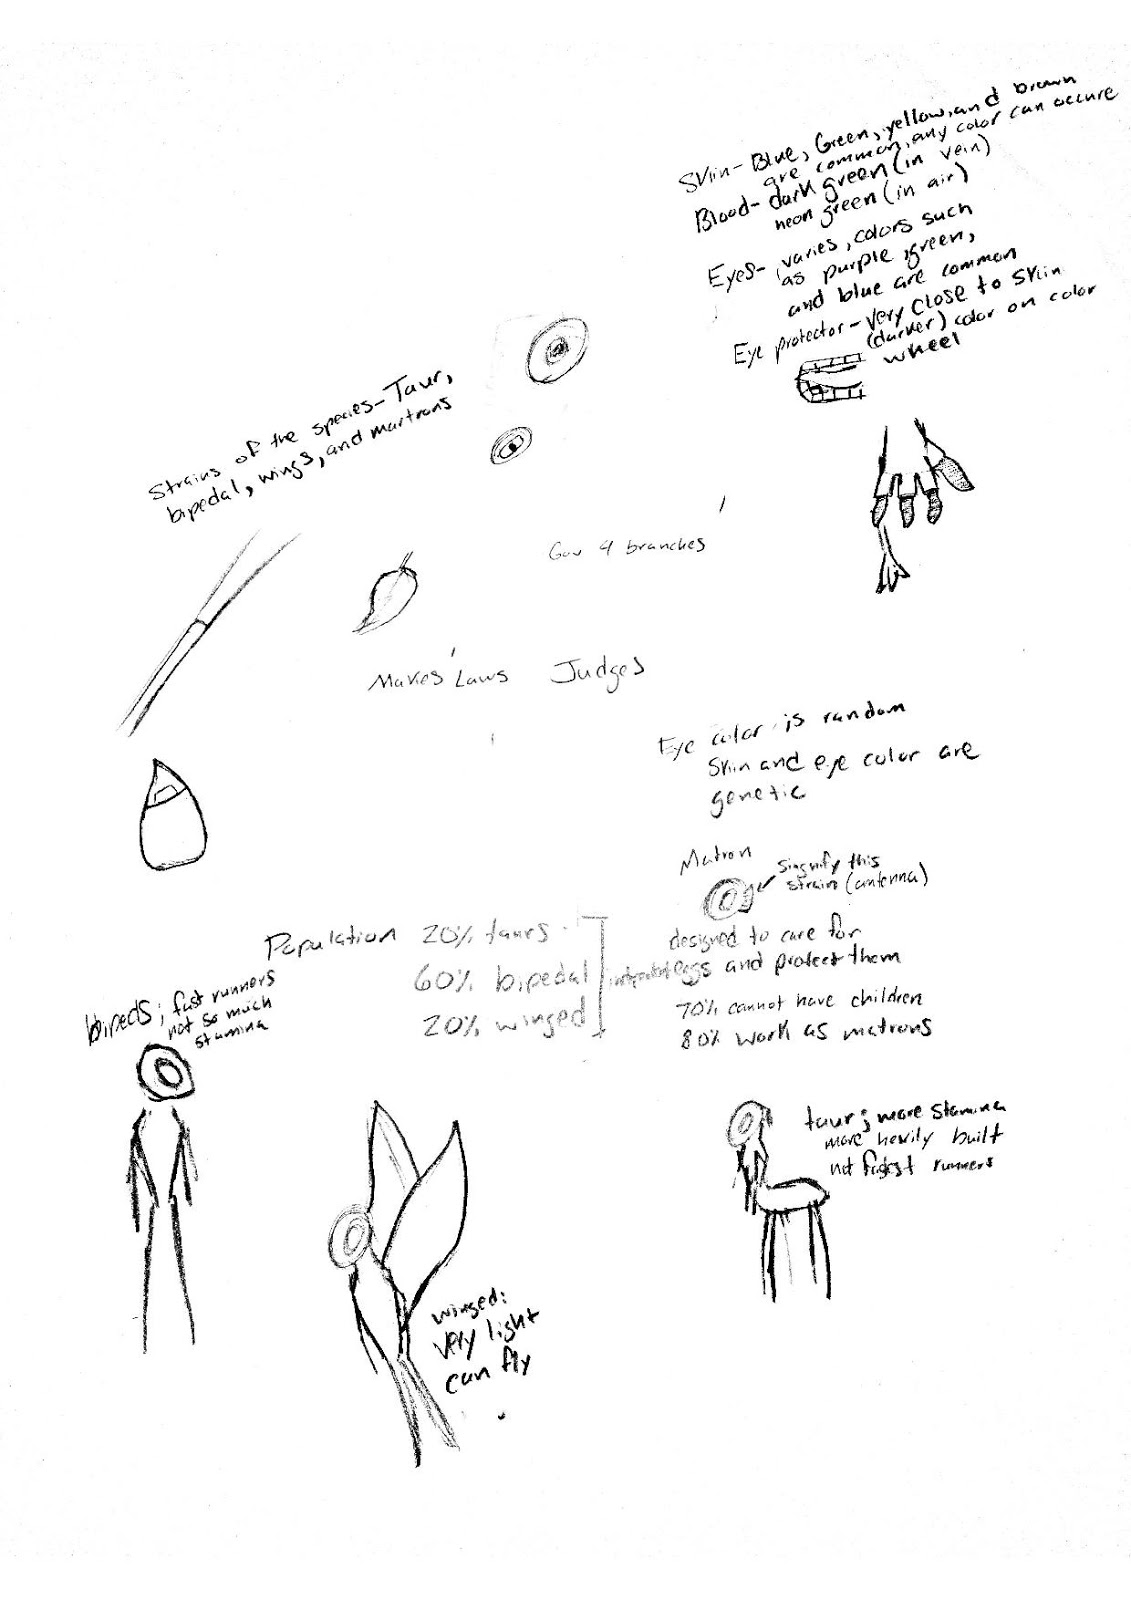 Skin- Blue, Green, yellow, and brown
are common, any color can occure
Blood- dark green (in vein)
neon green (in air)
Eyes- varies, colors such
as purple, green,
and blue are common
Eye protector- very close to skin
(darker) color on color
wheel
Strains of the species- Taur,
bipedal, wings, and martrons
Gov 4 branches
Makes Laws Judges
Eye color is random
Skin and eye color are
genetic
Matron
signify this
strain (antenna)
designed to care for
eggs and protect them
70% cannot have children
80% work as matrons
Population 20% taurs
60% bipedal
20% winged
bipeds; fast runners
not so much
stamina
winged:
very light
can fly
taur; more stamina
more hevily built
not fastest runners